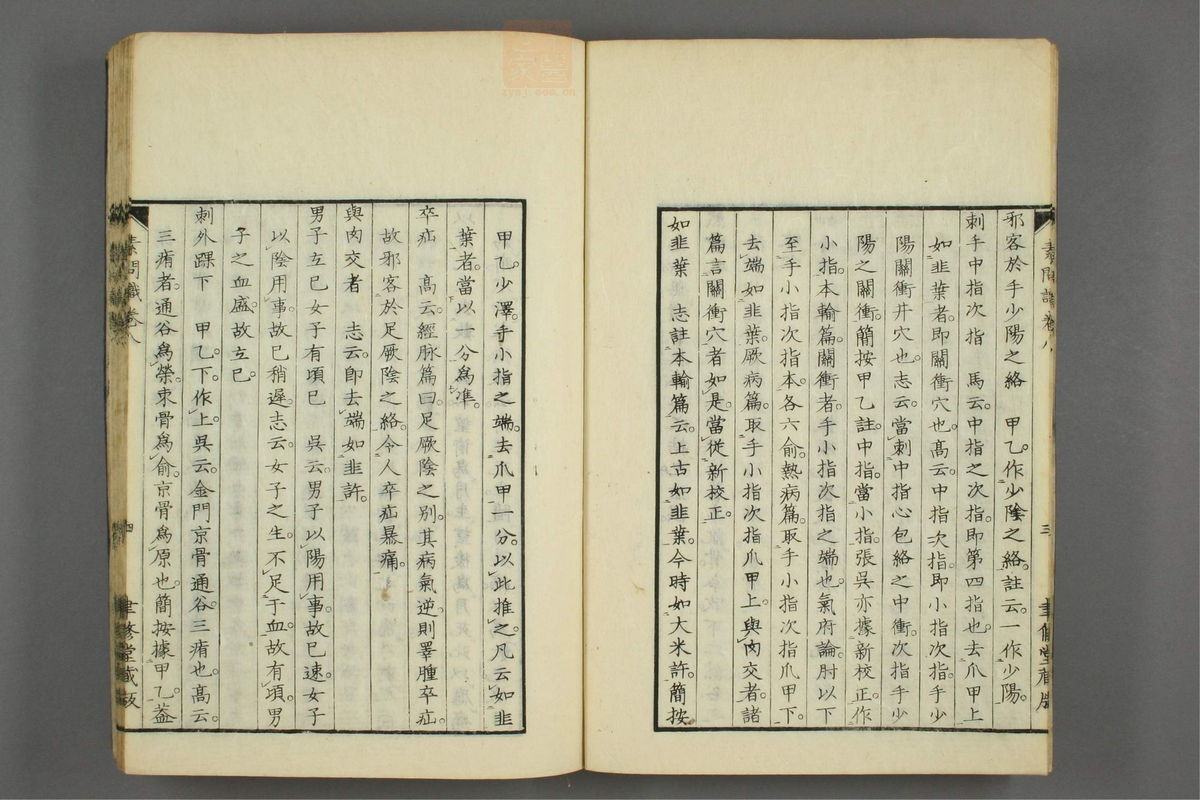 素問識卷八
三
聿修堂藏版
邪客於手少陽之絡　甲乙。作少陰之絡。註云。一作少陽。
刺手中指次指　馬云。中指之次指。即第四指也。去爪甲上
如韭葉者。即關衝穴也。高云。中指次指。即小指次指。手少
陽關衝井穴也。志云。當刺中指心包絡之中衝。次指手少
陽之關衝。簡按甲乙註中指。當小指。張吳亦據新校正。作
小指。本輸篇。關衝者。手小指次指之端也。氣府論。肘以下
至手小指次指本。各六俞。熱病篇。取手小指次指爪甲下。
去端如韭葉。厥病篇。取手小指次指爪甲上。與肉交者。諸
篇言關衝穴者如是。當從新校正。
如韭葉　志註本輸篇云。上古如韭葉。今時如大米許。簡按
甲乙。少澤。手小指之端。去爪甲一分。以此推之。凡云如韭
葉者。當以一分爲準。
卒疝　高云。經脈篇曰。足厥陰之別。其病氣逆。則睪腫卒疝。
故邪客於足厥陰之絡。令人卒疝暴痛。
與肉交者　志云。即去端如韭許。
男子立已女子有頃已　吳云。男子以陽用事。故已速。女子
以陰用事。故已稍遲。志云。女子之生。不足于血。故有頃。男
子之血盛。故立已。
刺外踝下　甲乙。下。作上。吳云。金門京骨通谷。三痏也。高云。
三痏者。通谷爲滎。束骨爲俞。京骨爲原也。簡按據甲乙。蓋
素問識卷八
四
聿修堂藏版